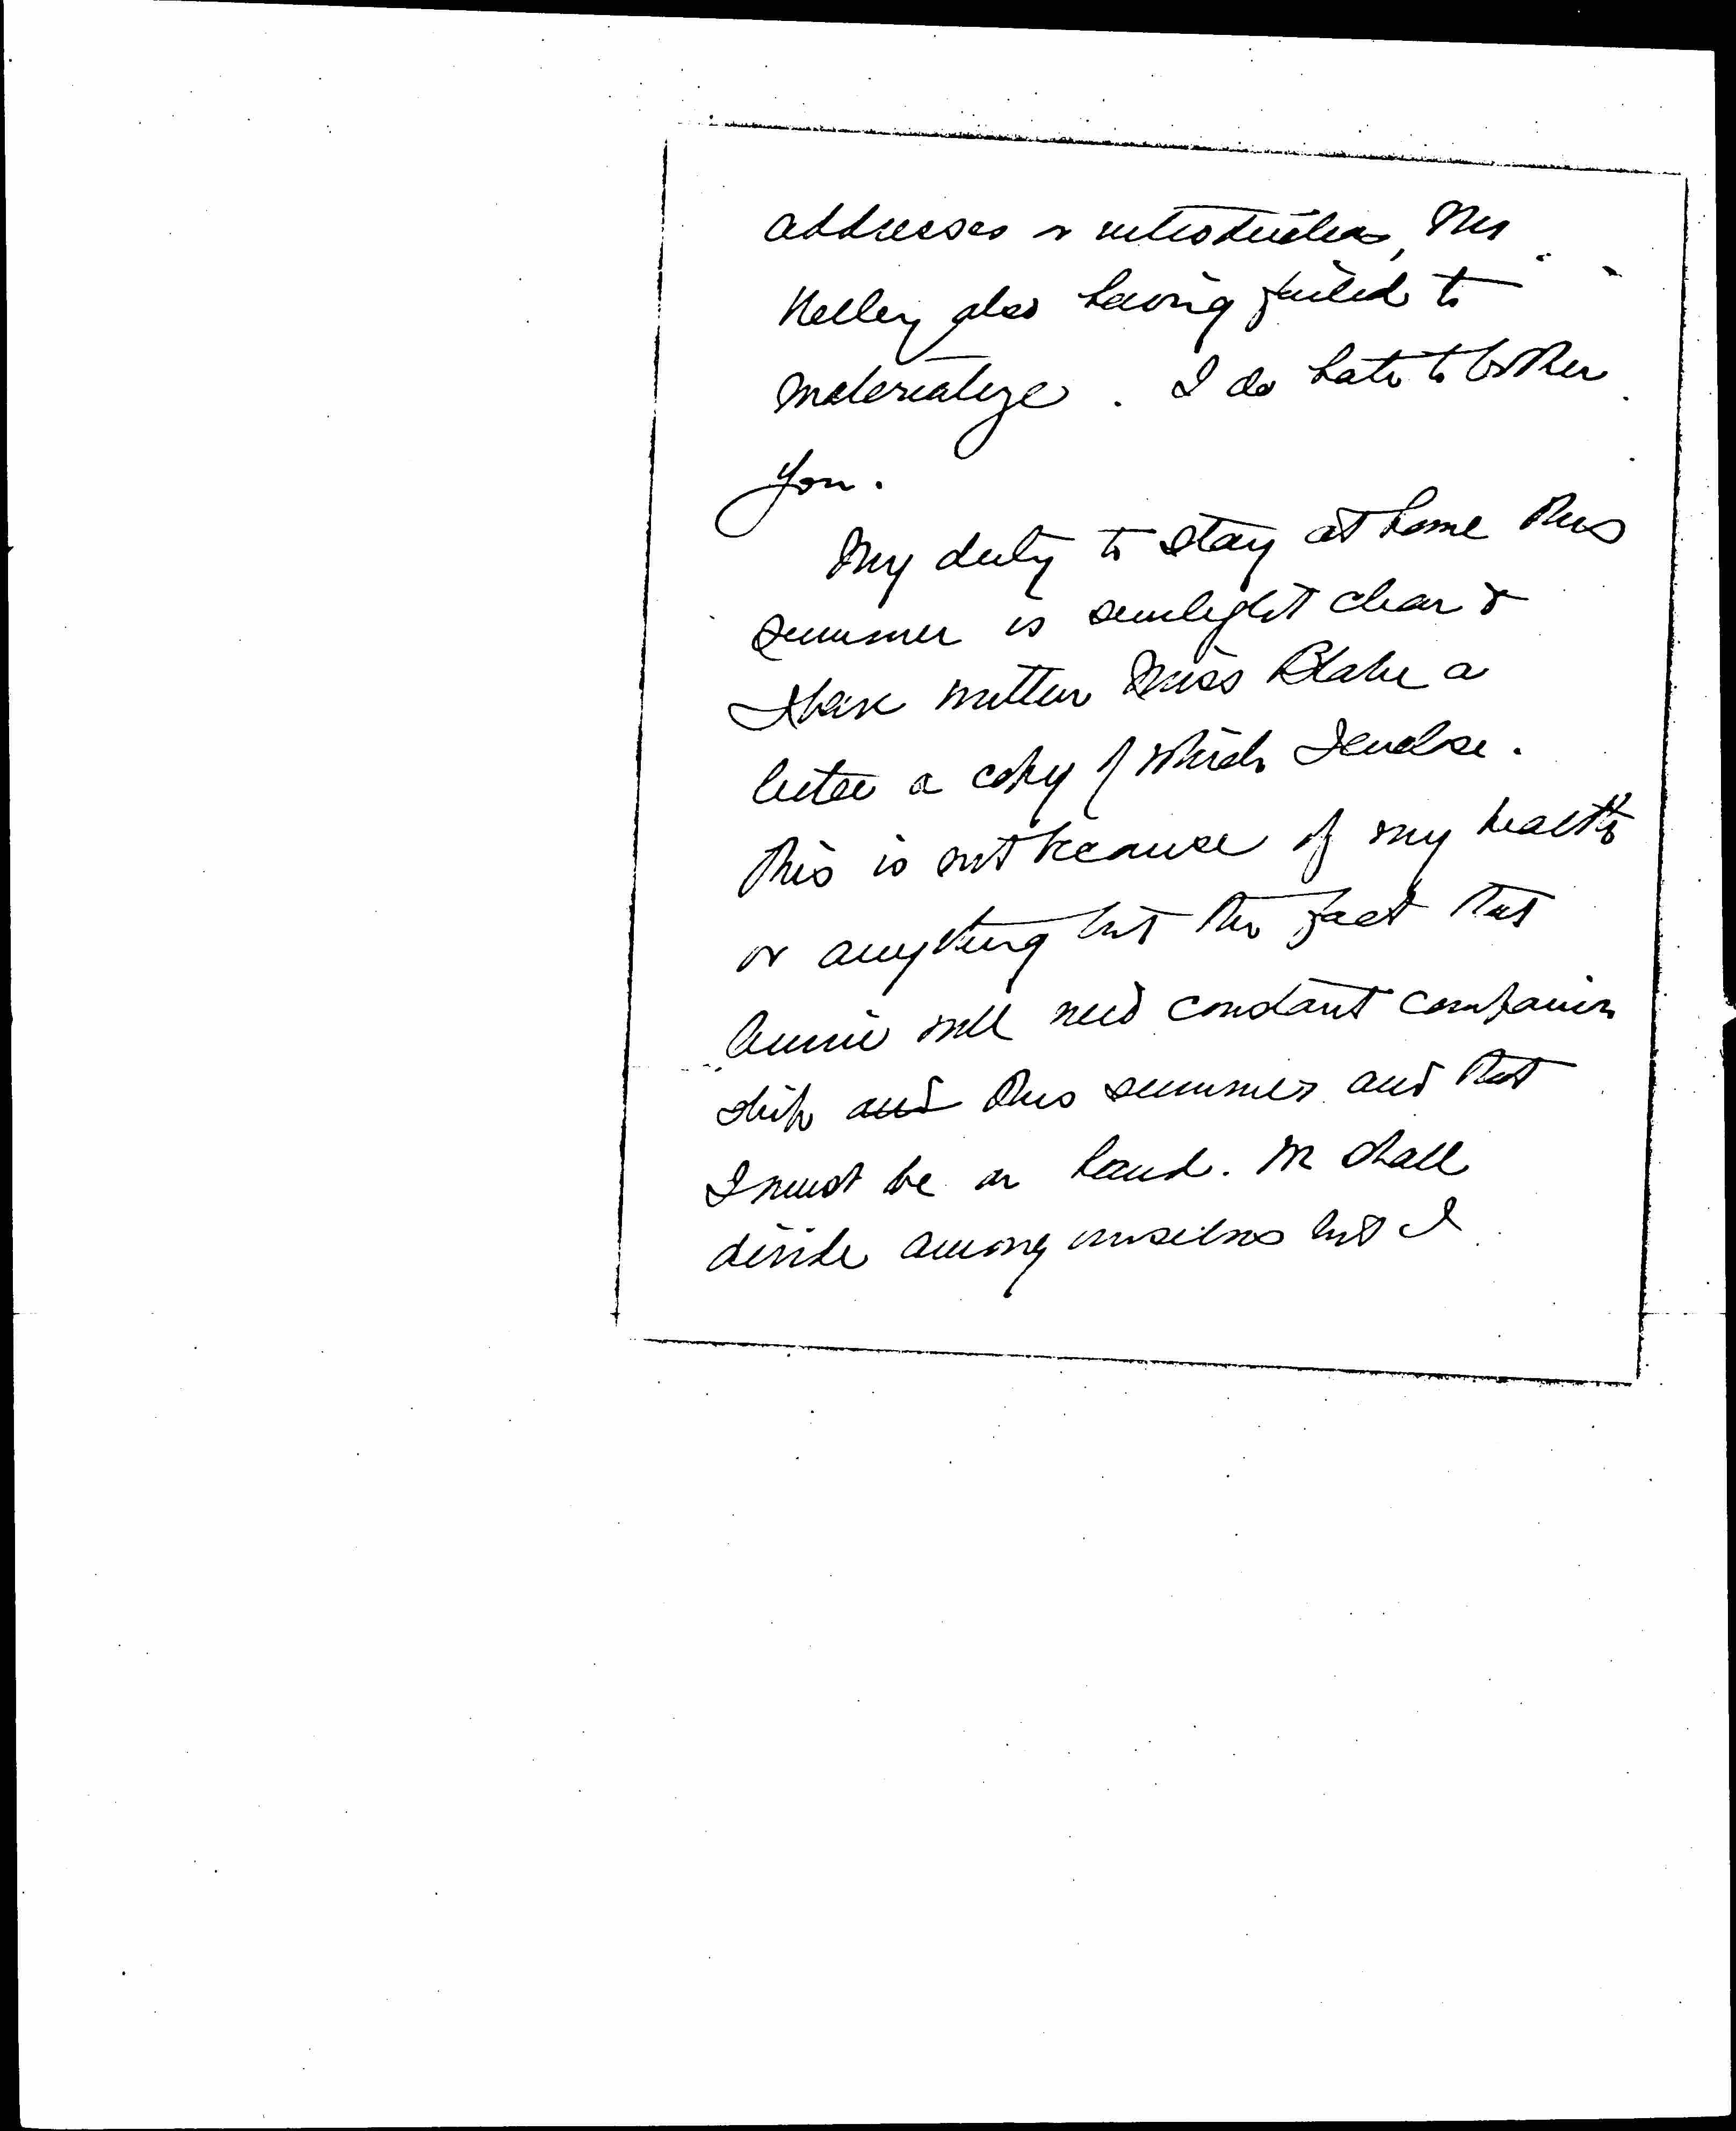 addresses or introductions, Mrs
Kelley also having failed to
materialize. I do hate to bother
you.
My duty to stay at home this
summer is sunlight clear &
I have written Miss Blake a
letter a copy of which I enclose.
This is not because of my health
or anything but the fact that
Annie will need constant companion
ship and this summer and that
I must be on hand. We shall
divide among ourselves but I